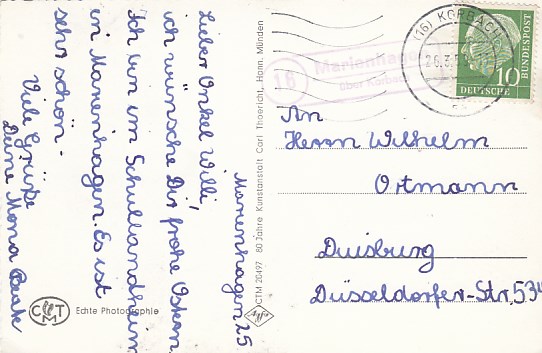 Marienhagen 25
Lieber Onkel Willi,
ich wünsche Dir frohe Ostern
Ich bin im Schullandheim
in Marienhagen. Es ist
sehr schön.
Viele Grüße
Deine Mona Beate
An
Herrn Wilhelm
Ortmann
Duisburg
Düsseldorfer-Str. 534
(16) KORBACH
26.3.
16
Marienhagen
über Korbach
10
DEUTSCHE
BUNDESPOST
CTM 20497 80 Jahre Kunstanstalt Carl Thoericht, Hann. Münden
CTM
Echte Photographie
Agfa